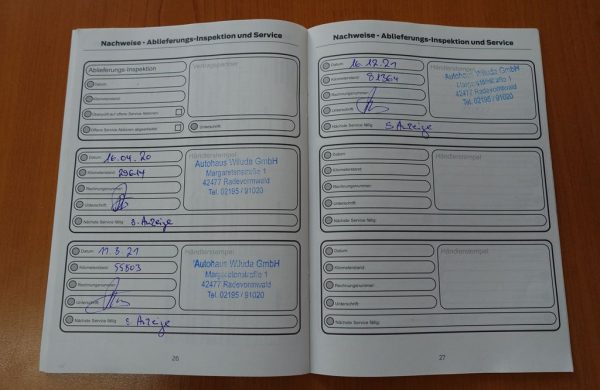 Nachweise - Ablieferungs-Inspektion und Service
Ablieferungs-Inspektion
Datum:
Kilometerstand:
Offene Service Aktionen abgearbeitet:
Unterschrift:
Vertragspartner
Datum: 16.04.20
Kilometerstand: 29614
Rechnungsnummer:
Unterschrift:
Nächste Service fällig: s. Anzeige
Händlerstempel
Autohaus Wluda GmbH
Margaretenstraße 1
42477 Radevormwald
Tel. 02195 / 91020
Datum: 11 3.21
Kilometerstand: 55803
Rechnungsnummer:
Unterschrift:
Nächste Service fällig: s. Anzeige
Händlerstempel
Autohaus Wluda GmbH
Margaretenstraße 1
42477 Radevormwald
Tel. 02195 / 91020
26
Nachweise - Ablieferungs-Inspektion und Service
Datum: 16.12.21
Kilometerstand: 81364
Rechnungsnummer:
Unterschrift:
Nächste Service fällig: s. Anzeige
Händlerstempel
Autohaus Wluda GmbH
Margaretenstraße 1
42477 Radevormwald
Tel. 02195 / 91020
Datum:
Kilometerstand:
Rechnungsnummer:
Unterschrift:
Nächste Service fällig:
Händlerstempel
Datum:
Kilometerstand:
Rechnungsnummer:
Unterschrift:
Nächste Service fällig:
Händlerstempel
27